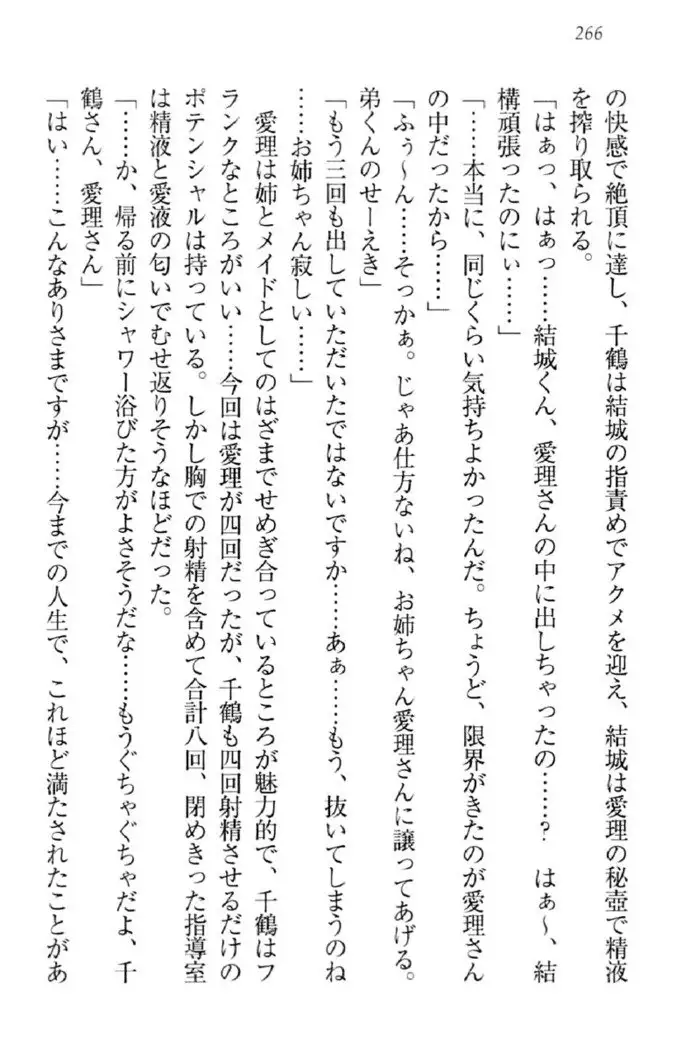 266
の快感で絶頂に達し、千鶴は結城の指責めでアクメを迎え、結城は愛理の秘壺で精液
を搾り取られる。
「はぁっ、はぁっ……結城くん、愛理さんの中に出しちゃったの……？　はぁ～、結
構頑張ったのにぃ……」
「……本当に、同じくらい気持ちよかったんだ。ちょうど、限界がきたのが愛理さん
の中だったから……」
「ふぅ～ん……そっかぁ。じゃあ仕方ないね、お姉ちゃん愛理さんに譲ってあげる。
弟くんのせーえき」
「もう三回も出していただいたではないですか……あぁ……もう、抜いてしまうのね
……お姉ちゃん寂しい……」
愛理は姉とメイドとしてのはざまでせめぎ合っているところが魅力的で、千鶴はフ
ランクなところがいい……今回は愛理が四回だったが、千鶴も四回射精させるだけの
ポテンシャルは持っている。しかし胸での射精を含めて合計八回、閉めきった指導室
は精液と愛液の匂いでむせ返りそうなほどだった。
「……か、帰る前にシャワー浴びた方がよさそうだな……もうぐちゃぐちゃだよ、千
鶴さん、愛理さん」
「はい……こんなありさまですが……今までの人生で、これほど満たされたことがあ